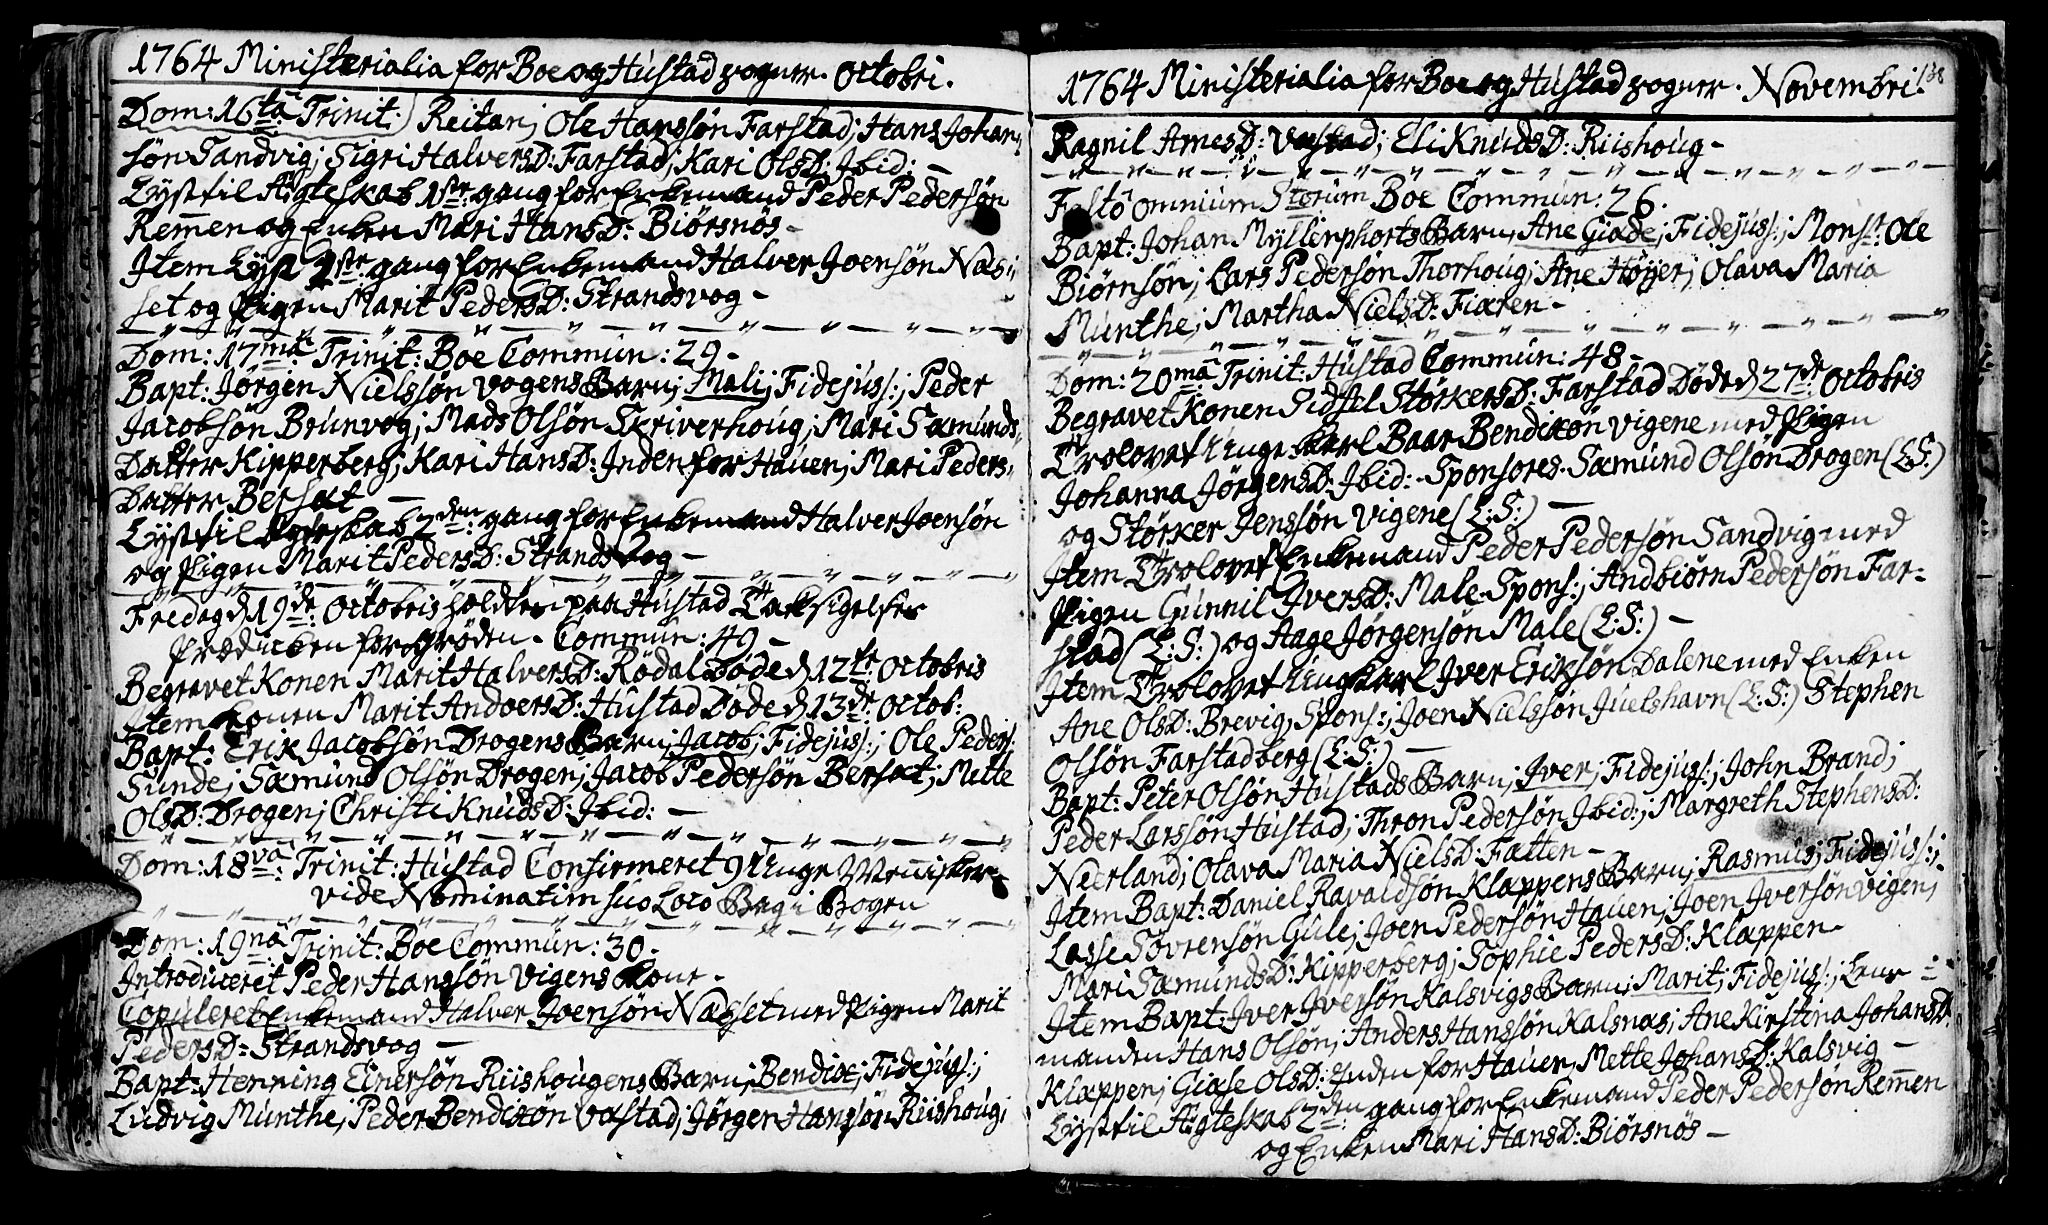 1764 Ministerialia for Boe og Hustad zogner. Octobri.
Dom: 16ta Trinit:) Reitan; Ole Hanssøn Farstad; Hans Johan-
søn Sandvig; Sigri HalversD: Farstad; Kari OlsD: Ibid: —
Lyst til Ægteskab 1ste gang for Enkemand Peder Pedersøn
Remen og Enken Mari HansD: Biørsnøs —
Item Lyst 1ste gang for Enkemand Halver Joensøn Næs-
set og Pigen Marit PedersD: Strandsvog —
Dom: 17ma Trinit: Boe Commun: 29 —
Bapt: Jørgen Nielssøn Vogens Barn; Mali; Fidejuss:; Peder
Jacobsøn Brunvog; Mads Olsøn Skriverhoug; Mari Sæmunds-
Datter Kipperberg; Kari HansD: Inden for Hauen; Mari Peders-
Datter Bersæt —
Lyst til Ægteskab 2den gang for Enkemand Halver Joensøn
og Pigen Marit PedersD: Strandsvog —
Fredag d 19de Octobris holdten paa Hustad Taksigelses
Prædicken for Grøden. Commun: 49 —
Begravet Konen Marit HalversD: Rødal Døde d 12te Octobris
Item Konen Marit AndersD: Hustad Døde d 13de Octob:
Bapt: Erik Jacobsøn Drogens Barn; Jacob; Fidejuss:; Ole Peders:
Sunde; Sæmund Olsøn Drogen; Jacob Pedersøn Bersæt; Mette
OlsD: Drogen; Christi KnudsD: Ibid: —
Dom: 18va Trinit: Hustad Confirmeret 9 Unge Menisker
vide Nominatim suo Loco Bag i Bogen
Dom: 19na Trinit: Boe Commun: 30 —
Introduceret Peder Hanssøn Vigens Kone —
Copuleret Enkemand Halver Joensøn Næsset med Pigen Marit
PedersD: Strandsvog —
Bapt: Henning Einersøn Riishougens Barn; Bendix; Fidejuss:;
Ludvig Munthe; Peder Bendixøn Vastad; Jørgen Hanssøn Riishoug;
1764 Ministerialia for Boe og Hustad zogner. Novembri. 138
Ragnil ArnesD: Vastad; Eli KnudsD: Riishoug —
Festo omnium Storum Boe Commun: 26.
Bapt: Johan Myllenphorts Barn; Ane Giade; Fidejuss:; Monsr. Ole
Biørnsøn; Lars Pedersøn Thorhoug; Ane Høyer; Olava Maria
Munthe; Martha NielsD: Fiaren —
Dom: 20ma Trinit: Hustad Commun: 48 —
Begravet Konen Sidsel StørkersD: Farstad Døde d 27de Octobris
Trolovet Unge Karl Baar Bendixøn Vigene med Pigen
Johanna JørgensD: Ibid: Sponsores Sæmund Olsøn Drogen (L:S:)
og Størker Jenssøn Vigene (L:S:) —
Item Trolovet Enkemand Peder Pedersøn Sandvig med
Pigen Gunnil IversD: Male Spons:; Andbiørn Pedersøn Far-
stad (L:S:) og Aage Jørgensøn Male (L:S:) —
Item Trolovet Ung Karl Iver Eriksøn Dalene med Enken
Ane OlsD: Brevig; Spons:; Joen Nielssøn Juelshavn (L:S:) Stephen
Olsøn Farstadberg (L:S:) —
Bapt: Peter Olsøn Hustads Barn; Iver; Fidejuss:; John Brand;
Peder Larssøn Hustad; Thron Pedersøn Ibid:; Margreth StephensD:
Neerland; Olava Maria NielsD: Fatten —
Item Bapt: Daniel Ravaldsøn Klappens Barn; Rasmus; Fidejuss:;
Lasse Sovrensøn Gule; Joen Pedersøn Hauen; Joen Iversøn Vigen;
Mari SæmundsD: Kipperberg; Sophie PedersD: Klappen —
Item Bapt: Iver Iversøn Kalsvigs Barn; Marit; Fidejuss:; Lens-
manden Hans Olsøn; Anders Hanssøn Kalsnæs; Ane Kirstina JohansD:
Klappen; Giøse OlsD: Inden for Hauen; Mette JohansD: Kalsvig —
Lyst til Ægteskab 2den gang for Enkemand Peder Pedersøn Remen
og Enken Mari HansD: Biørsnøs —